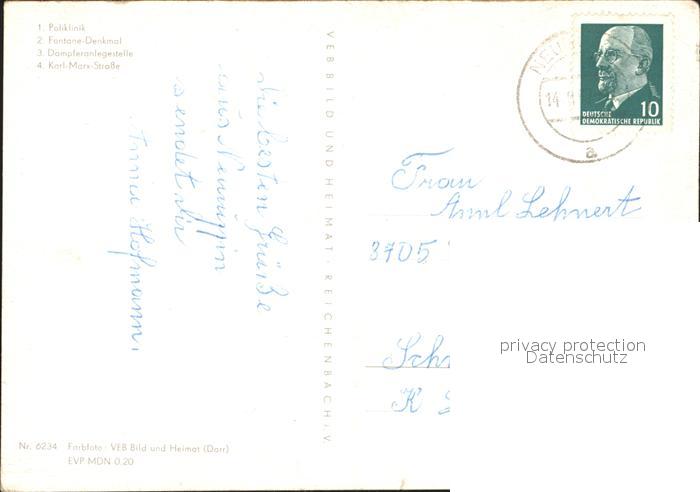 1. Poliklinik
2. Fontane-Denkmal
3. Dampferanlegestelle
4. Karl-Marx-Straße
die besten Grüße
aus Neuruppin
sendet dir
Annie Hofmann.
VEB BILD UND HEIMAT · REICHENBACH i. V.
NEU
14.
a
DEUTSCHE
DEMOKRATISCHE REPUBLIK
10
Frau
Lehnert
8705
Sch
K
privacy protection
Datenschutz
Nr. 6234 Farbfoto: VEB Bild und Heimat (Darr)
EVP MDN 0.20